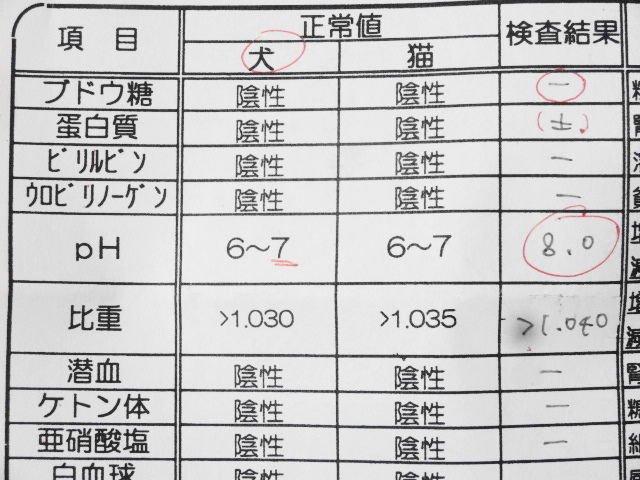 項 目 正常値 検査結果
犬 猫
ブドウ糖 陰性 陰性 －
蛋白質 陰性 陰性 (±)
ビリルビン 陰性 陰性 －
ウロビリノーゲン 陰性 陰性 －
pH 6～7 6～7 8.0
比重 >1.030 >1.035 >1.040
潜血 陰性 陰性 －
ケトン体 陰性 陰性 －
亜硝酸塩 陰性 陰性 －
白血球 陰性 陰性